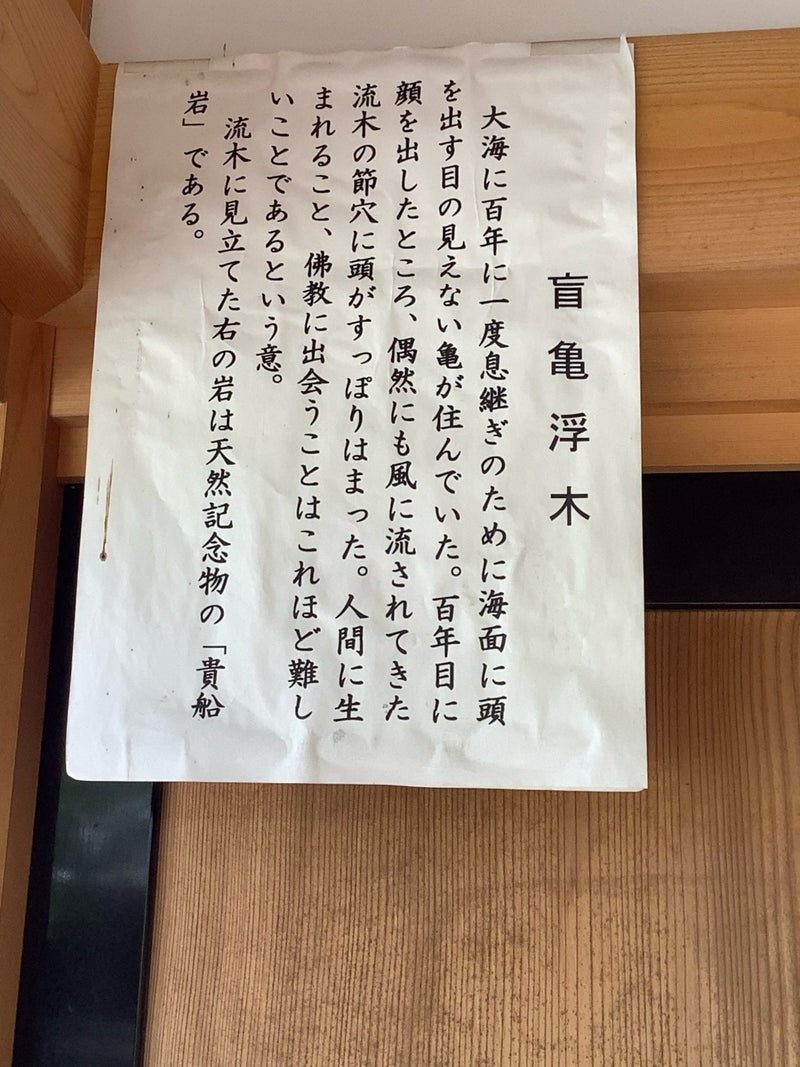 盲亀浮木
大海に百年に一度息継ぎのために海面に頭
を出す目の見えない亀が住んでいた。百年目に
顔を出したところ、偶然にも風に流されてきた
流木の節穴に頭がすっぽりはまった。人間に生
まれること、佛教に出会うことはこれほど難し
いことであるという意。
流木に見立てた右の岩は天然記念物の「貴船
岩」である。